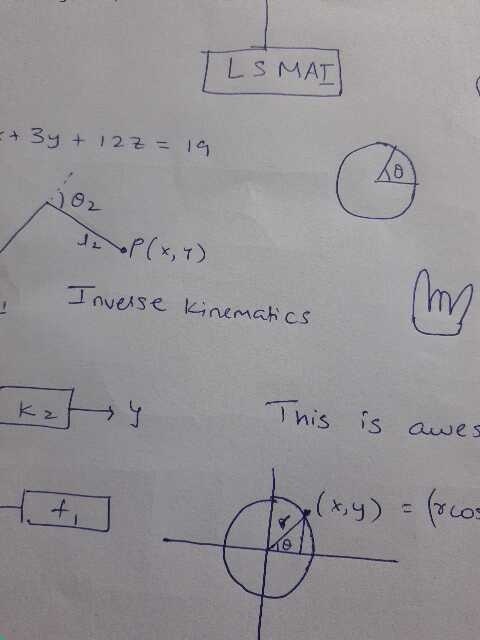 LSMAI
x + 3y + 12z = 19
θ
θ2
l2
P(x, y)
Inverse kinematics
K2
y
This is awes
f1
r
θ
(x,y) = (rcos